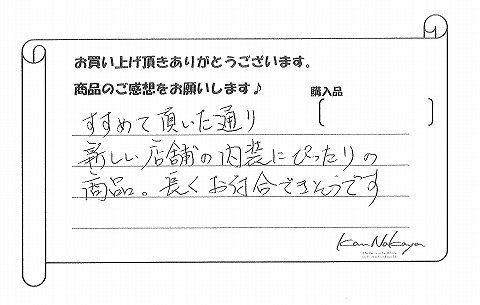 お買い上げ頂きありがとうございます。
商品のご感想をお願いします♪
購入品
すすめて頂いた通り
新しい店舗の内装にぴったりの
商品。長くお付合できそうです
Kan Nakaya